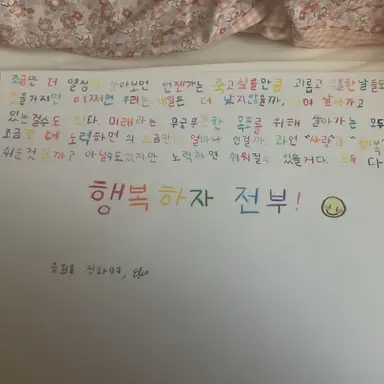 조금만 더 열심히 살아보면 언젠가는 죽고싶을만큼 괴롭고 우울한 날들도
있을거지만 어쩌면 우리는 내일은 더 낫지않을까, 하며 살아가고
있는걸수도 있다. 미래라는 무궁무진한 목표를 위해 살아가는 모두
조금만 더 노력하면 의 조금만은 얼마나 인걸까 과연 "사랑"과 "행복"
쉬운것일까? 아닐수도있지만 노력하면 쉬워질수 있을거다. 모두 다
행복하자 전부!
응원을 전하며,